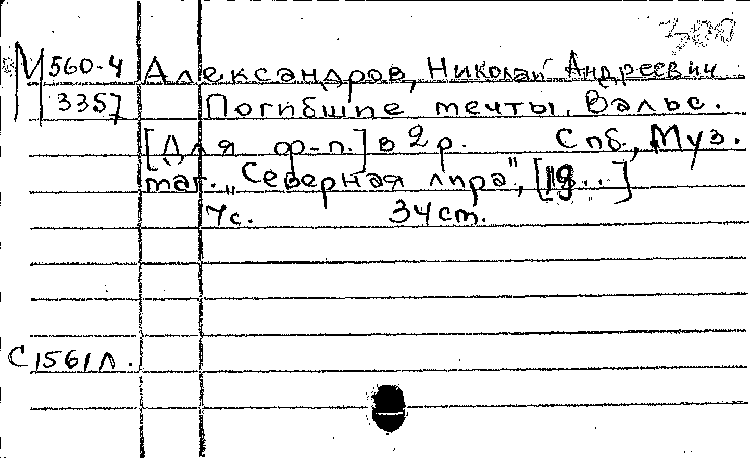 300
М 560-4 Александров, Николай Андреевич
3357 Погибшие мечты. Вальс.
[Для ф-п.] в 2 р. Спб., Муз.
маг. „Северная лира", [19...]
7с. 34 ст.
С 1561 л.